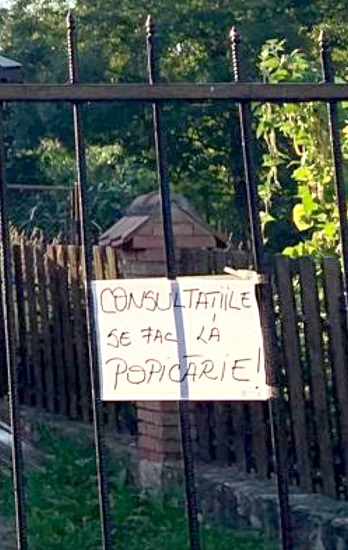 CONSULTATIILE
SE FAC LA
POPICĂRIE!